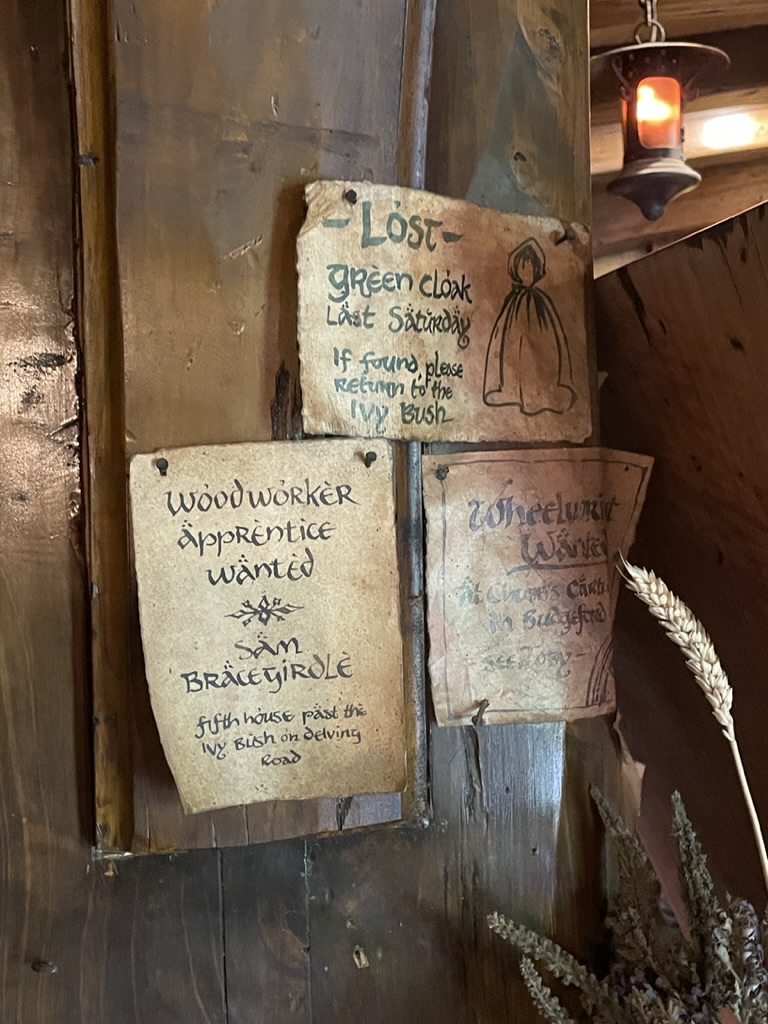 - Lost -
Green cloak
Last Saturday
If found, please
return to the
Ivy Bush
Woodworker
apprentice
wanted
Sam
Bracegirdle
fifth house past the
Ivy Bush on delving
Road
Wanted
At
in Budgeford